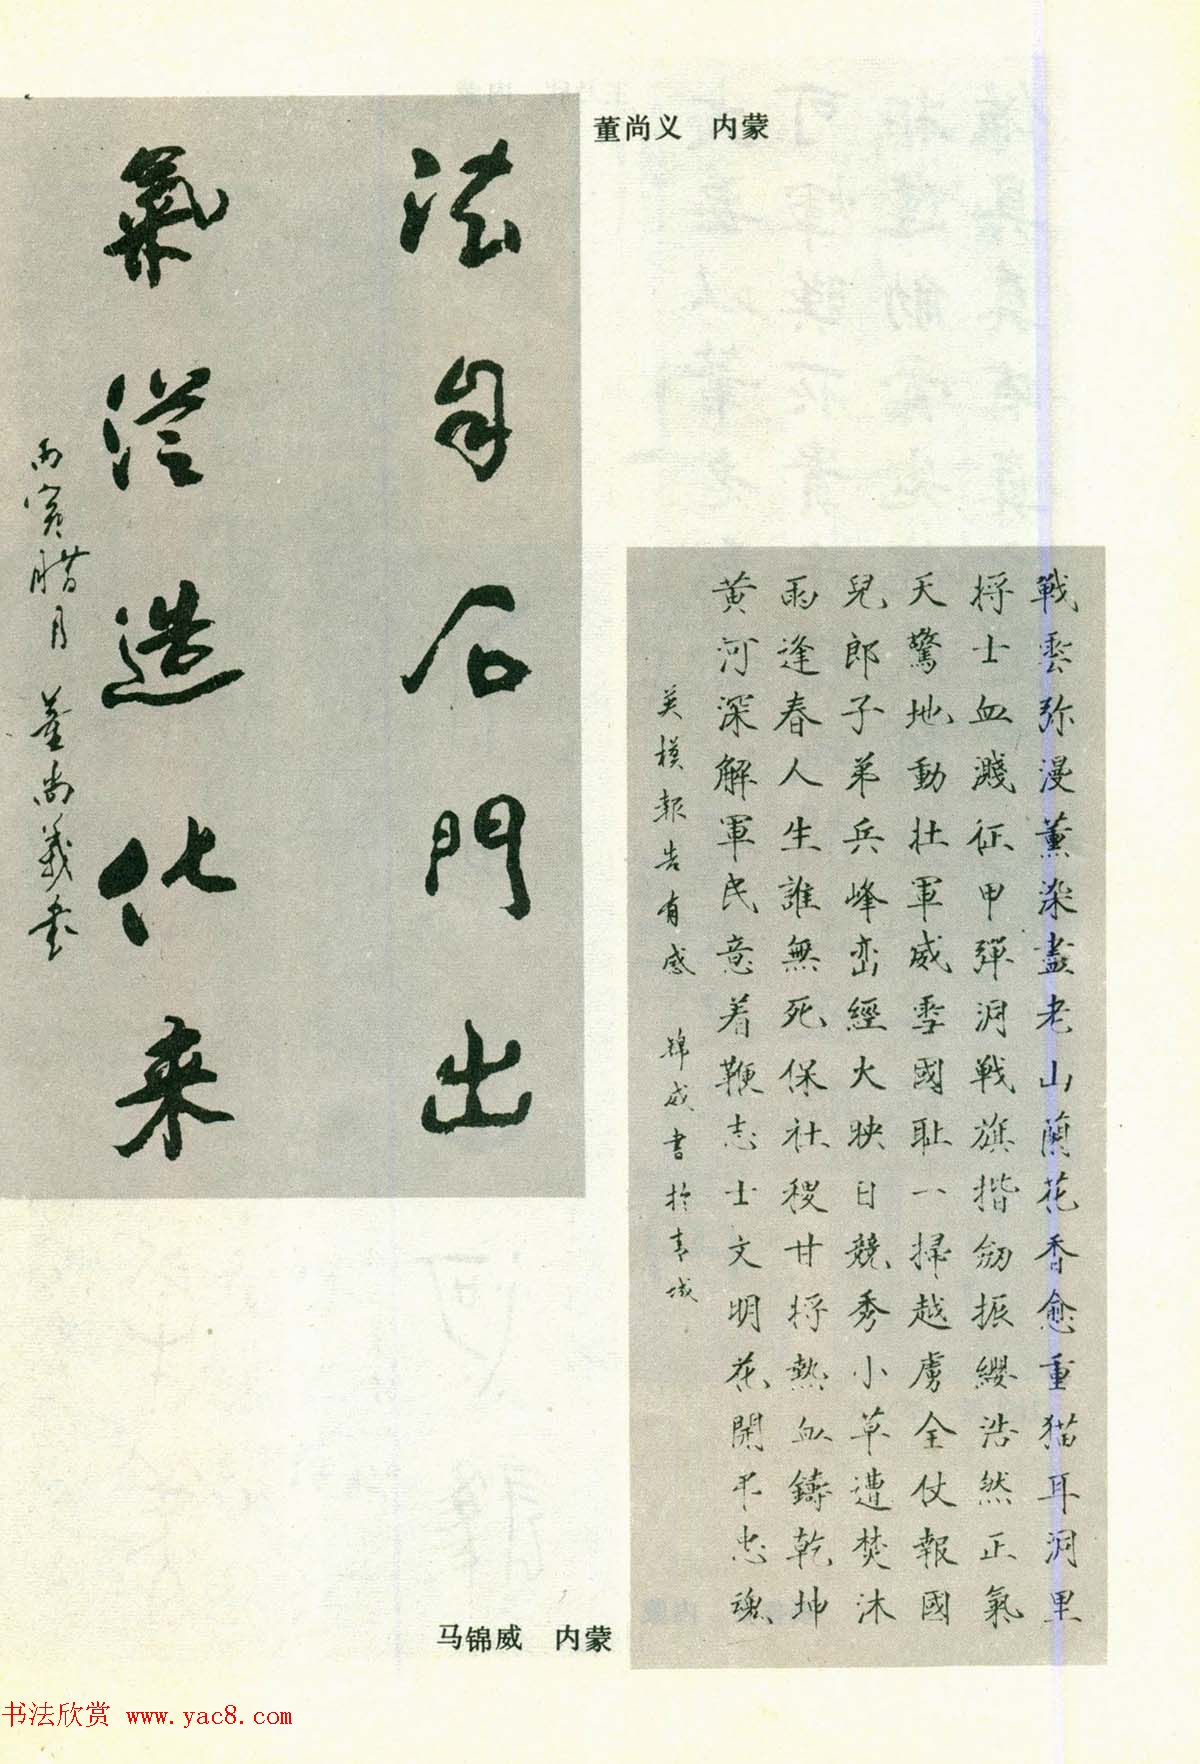 董尚义　内蒙
法自石門出
氣從造化来
丙寅腊月 董尚義書
戰雲弥漫薰染盡老山蘭花香愈重猫耳洞里
捋士血濺征甲彈洞戰旗揩劒振纓浩然正氣
天驚地動壮軍威雪國耻一掃越虜全仗報國
兒郎子弟兵峰巒經火映日競秀小草遭焚沐
雨逢春人生誰無死保社稷甘捋熱血鑄乾坤
黄河深解軍民意着鞭志士文明花開不忠魂
英模報告有感 錦威書於青城
马锦威　内蒙
书法欣赏 www.yac8.com